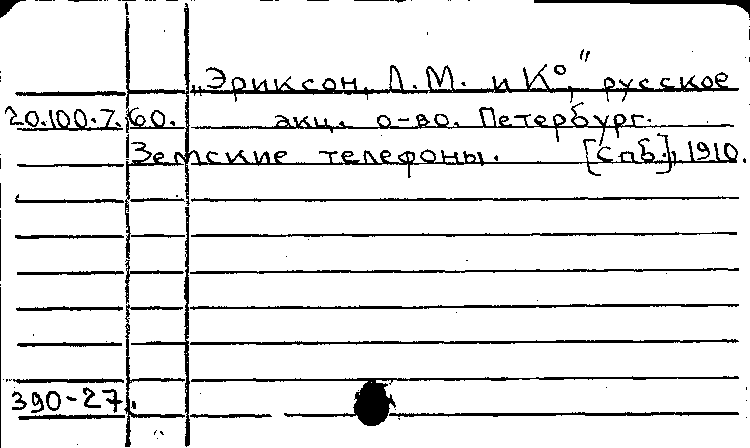 „Эриксон, Л.М. и К°," русское
20.100.7.60. акц. о-во. Петербург.
Земские телефоны. [Спб.], 1910.
390-27.